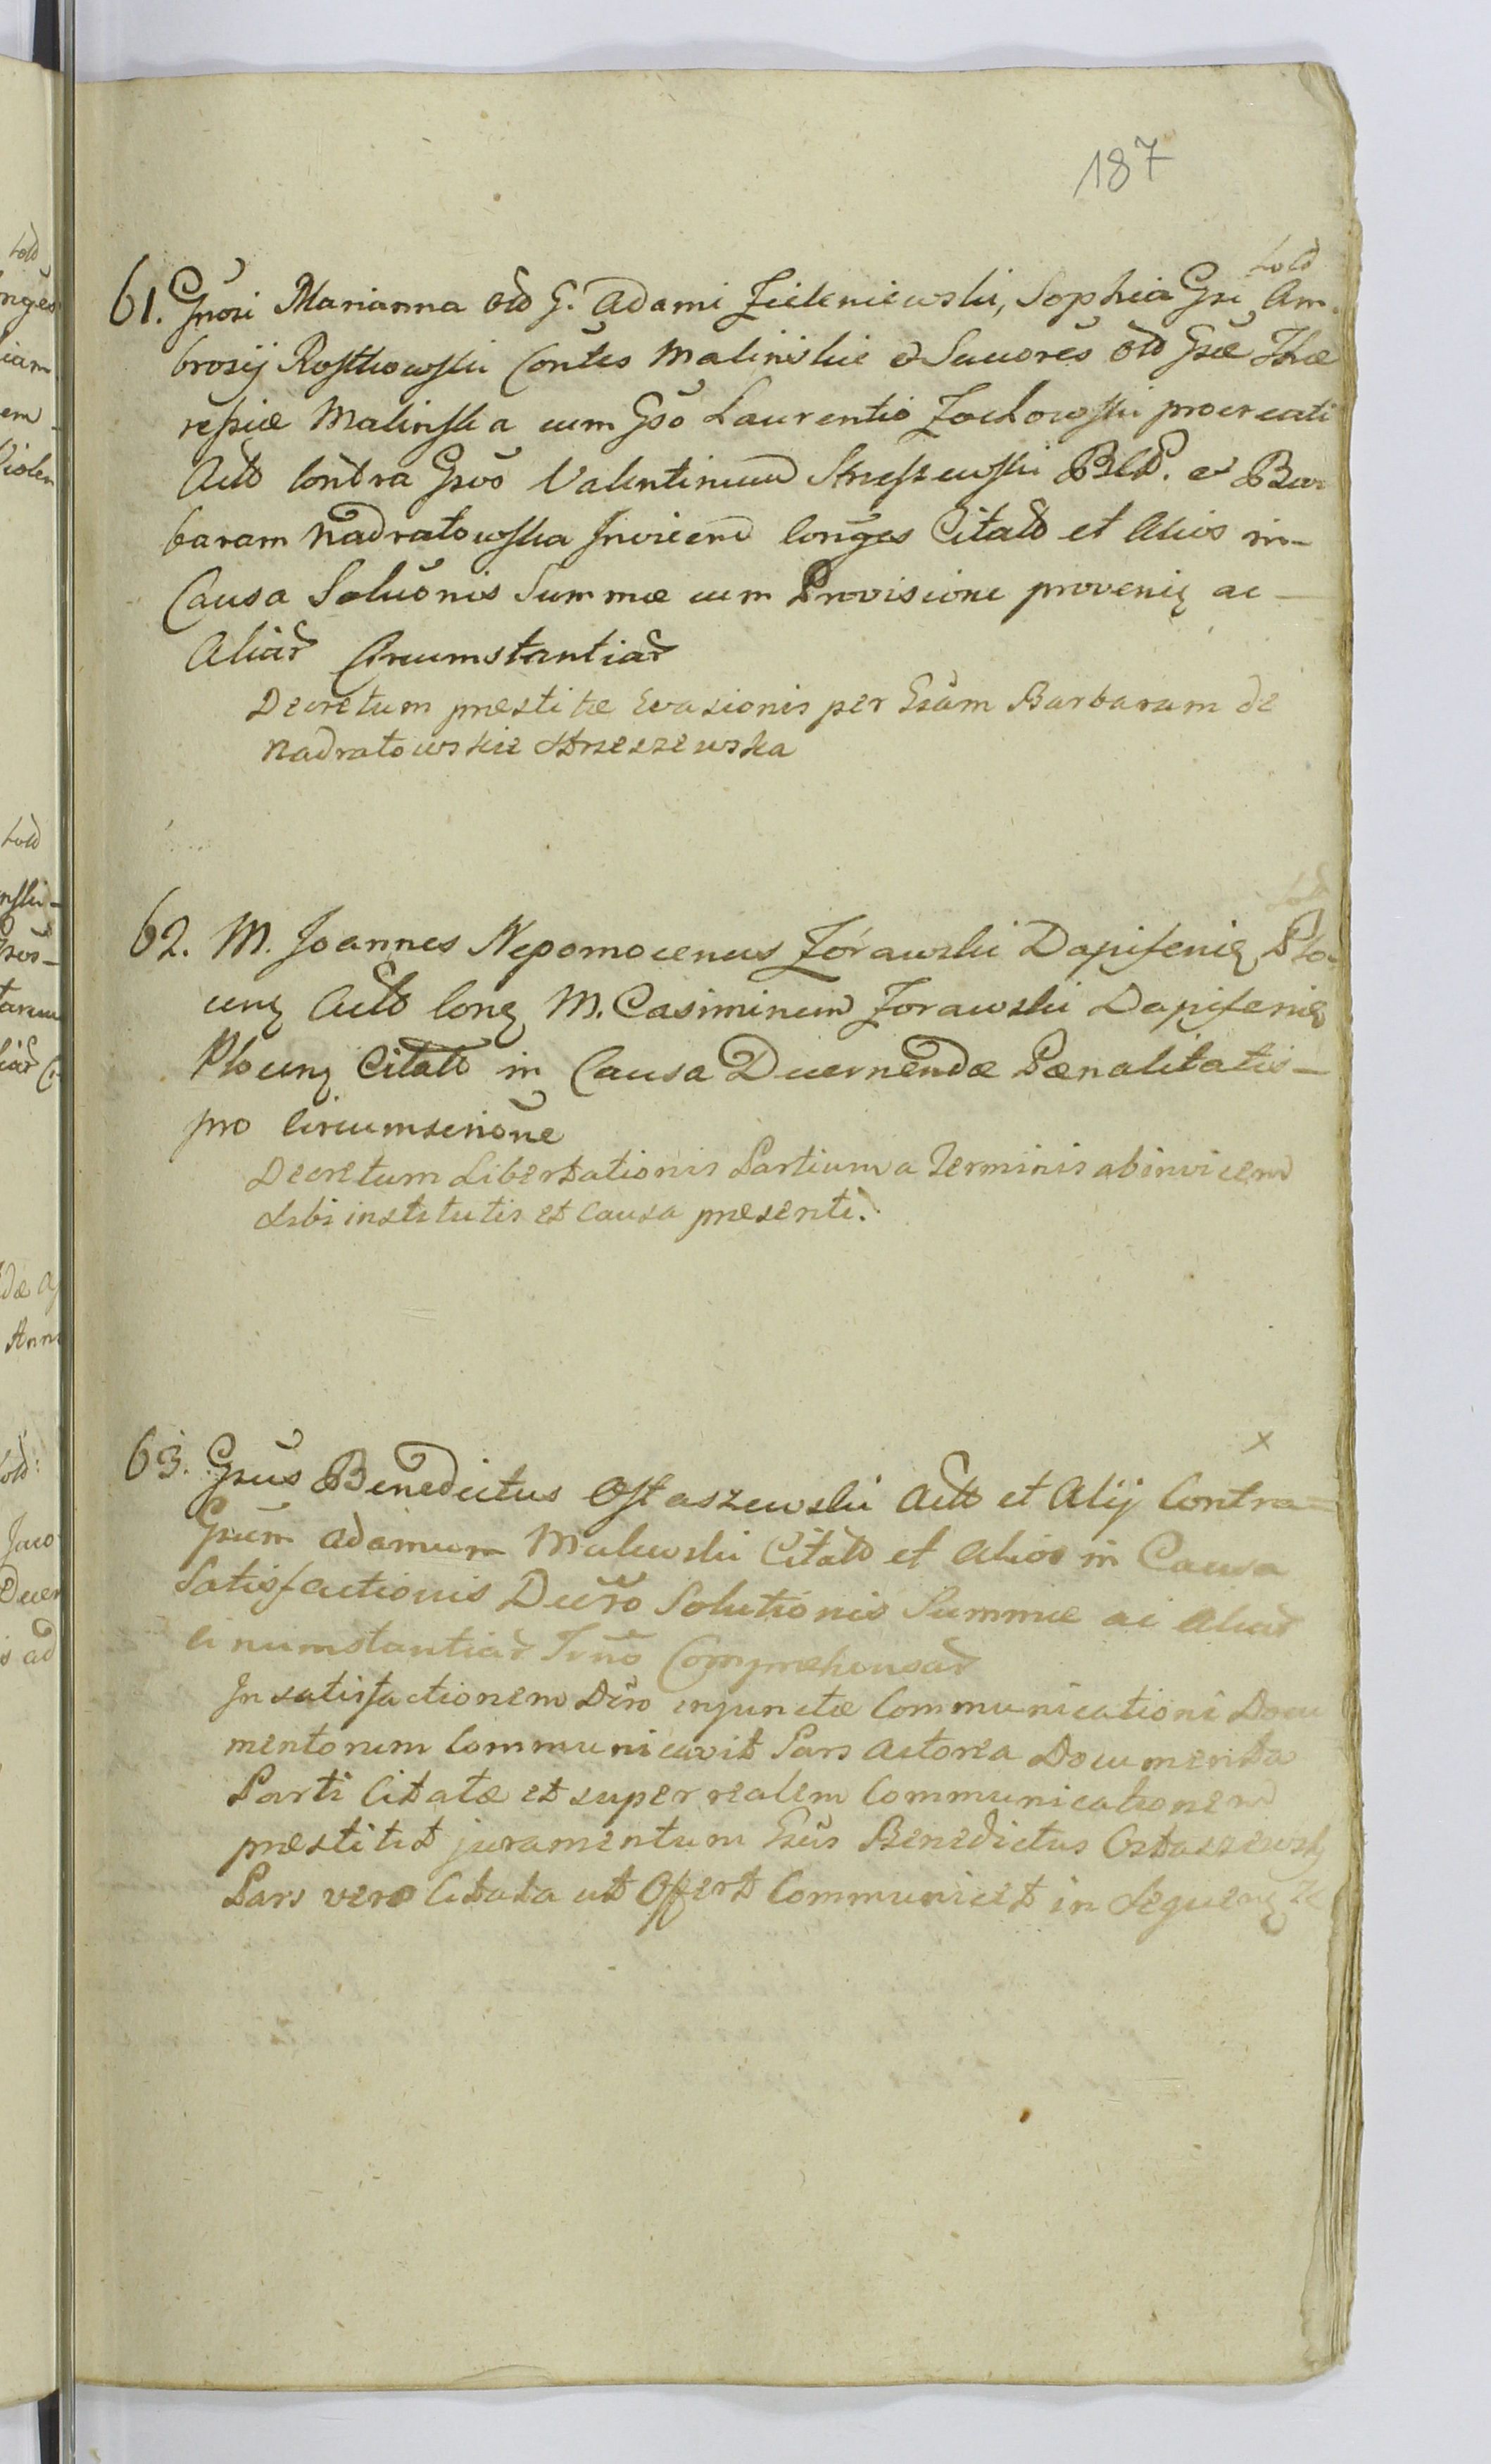 187
Sold
61. Gnosi Marianna olo G. Adami Zieleniewski, Sophia Gsi Am-
brosij Rostkowski Contes Malinskie & Sucores olo Gsæ The
ressiæ Malinska cum Gso Laurentio Zochowski procreati
Acto Contra Gsos Valentinum Strzeszewski et Bar
baram Nadratowska Invicem Conges Citato et Alios in
Causa Soluõnis Summæ cum Provisione provenię ac
Aliar Circumstantiar
Decretum præstitæ Evasionis per Gsam Barbaram de
Nadratowskie Strzeszewska
62. M. Joannes Nepomocenus Zórawski Dapiferię Plo-
cenę Acto Conę M. Casimirum Zorawski Dapiferię
Plocenę Citato in Causa Decernendæ Pænalitatis
pro Circumscrione
Decretum Libertationis Partium a Terminis abinvicem
sibi institutis et Causa præsenti.
x
63. Gsus Benedictus Ostaszewski Acto et Alij Contra
Gsum Adamum Malewski Citato et Alios in Causa
Satisfactionis Decro Solutionis Summæ ac Aliar
Circumstantiar Tvno Compræhensar
In satisfactionem Dcro injunctæ Communicationi Docu
mentorum Communicavit Pars Actorea Documenta
Parti Citatæ et super realem Communicationem
præstitit juramentum Gsus Benedictus Ostaszewski
Pars vero Citata ut Offert Communicet in Sequenę